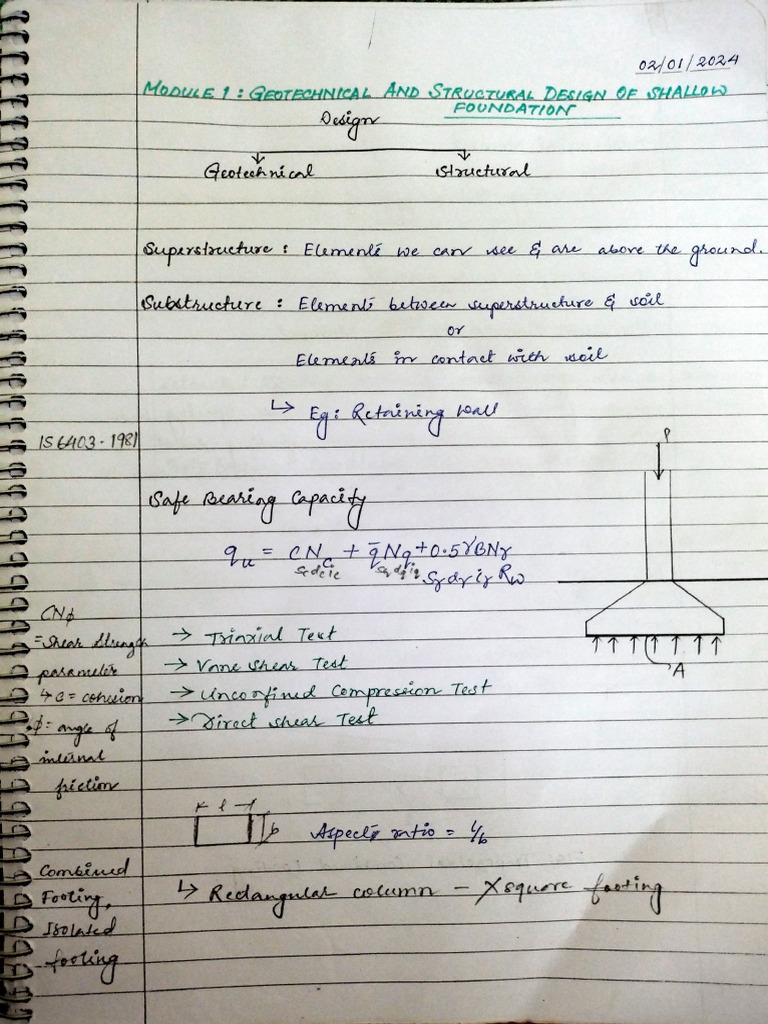 02/01/2024
MODULE 1 : GEOTECHNICAL AND STRUCTURAL DESIGN OF SHALLOW
FOUNDATION
Design
Geotechnical
Structural
Superstructure : Elements we can see & are above the ground.
Substructure : Elements between superstructure & soil
or
Elements in contact with soil
↳ Eg: Retaining wall
IS 6403 - 1981
P
Safe Bearing Capacity
qu = CNc + q̄Nq + 0.5γBNγ
Scdcic Sqdqiq Sγdγiγ Rw
A
CNϕ
= Shear Strength
parameter
↳ C = cohesion
ϕ = angle of
internal
friction
→ Triaxial Test
→ Vane shear Test
→ Unconfined Compression Test
→ Direct shear Test
l
b
Aspect ratio = l/b
↳ Rectangular column - X square footing
Combined
Footing,
Isolated
footing